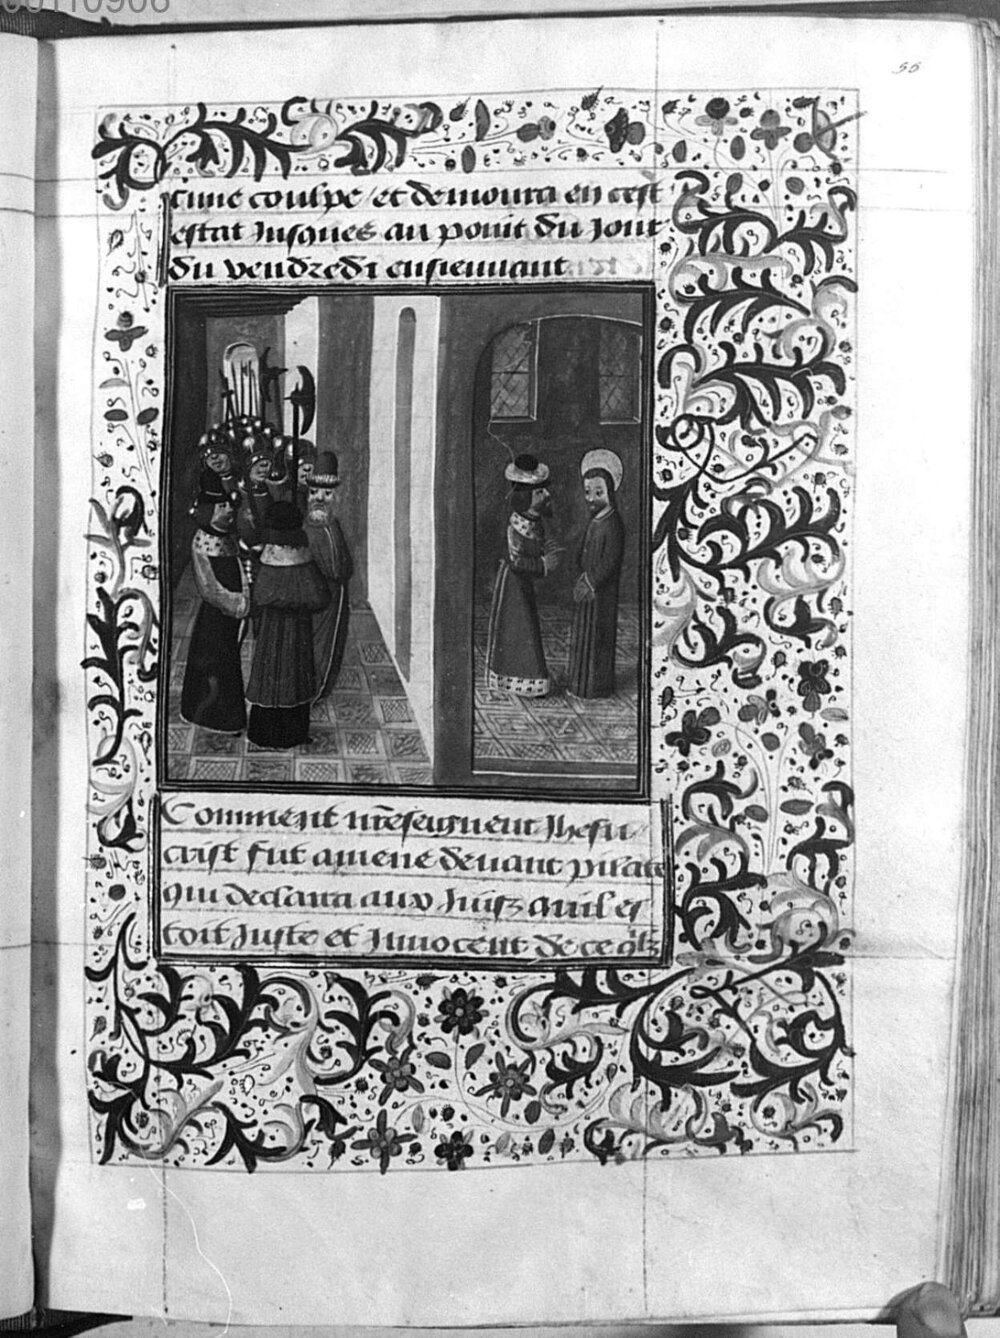 00110908
55
cune coulpe / et demoura en cest
estat Jusques au point du Jour
du vendredi ensieuuant
Comment nr̄eseigneur Jhesu
crist fut amene deuant pilate
qui declara aux Juifz quil es
toit Juste et Innocent de ce q̄lz